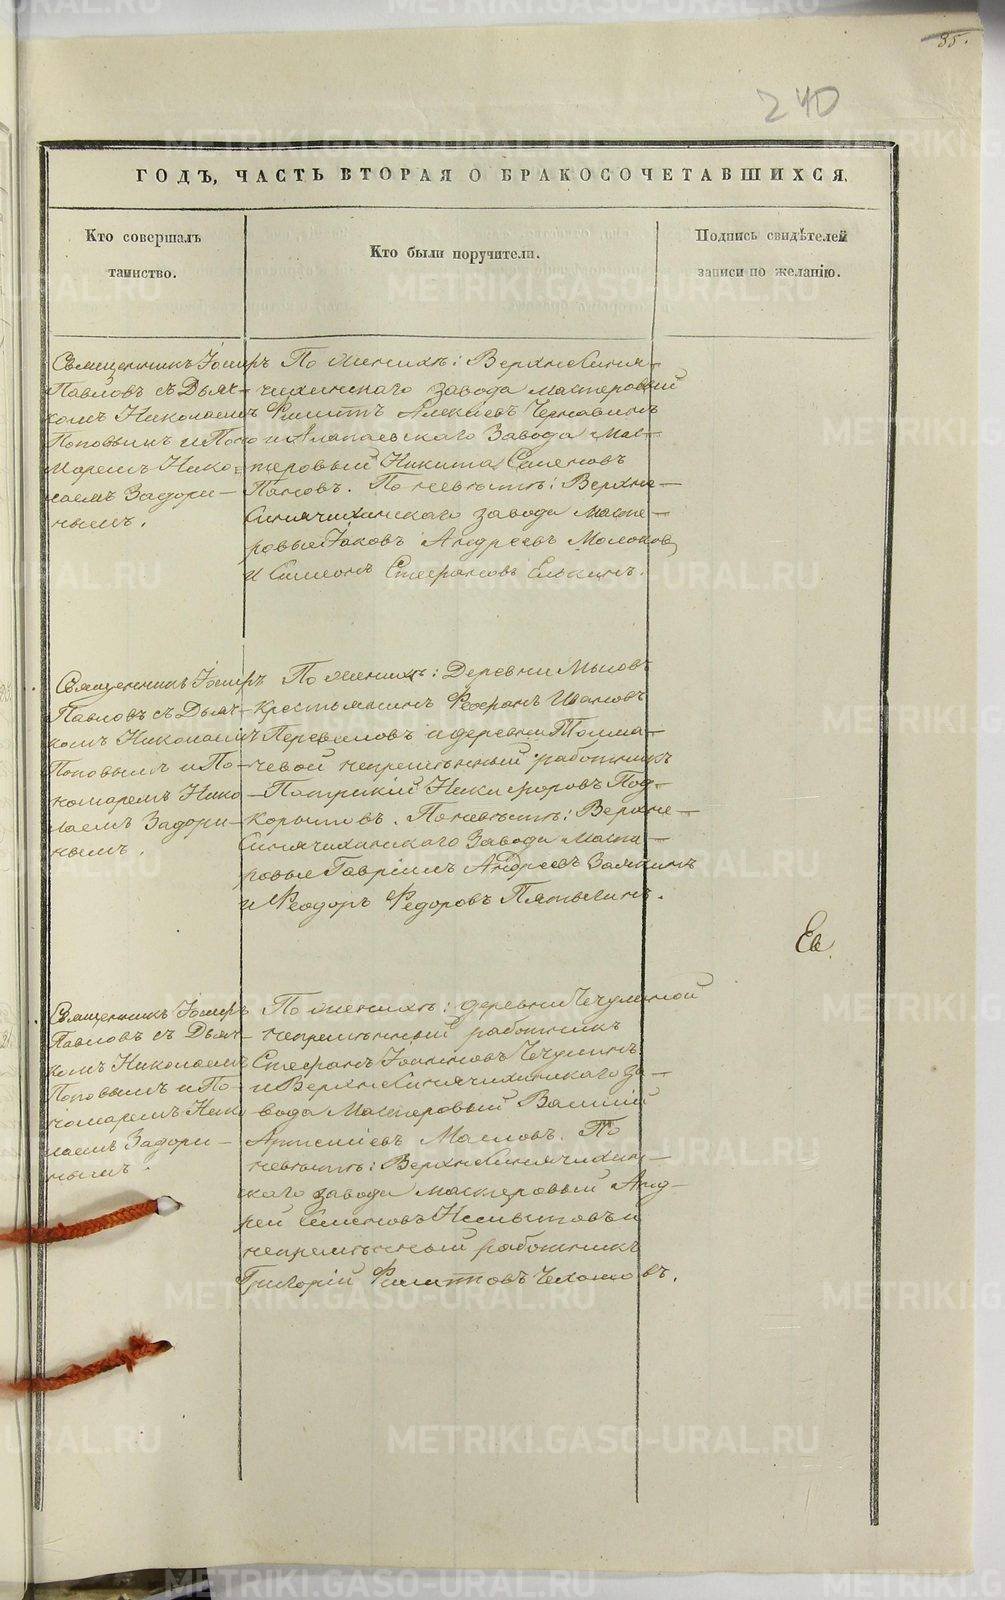 35.
240
ГОДЪ, ЧАСТЬ ВТОРАЯ О БРАКОСОЧЕТАВШИХСЯ.
Кто совершалъ
таинство.
Кто были поручители.
Подпись свидѣтелей
записи по желанію.
Священникъ Іосифъ
Павловъ съ Дьяч-
комъ Николаемъ
Поповымъ и Поно
маремъ Нико-
лаемъ Задори-
нымъ.
По женихѣ: Верхнесиня-
чихинскаго завода мастеровый
Филиппъ Алексѣевъ Чернавинъ
и Алапаевскаго Завода Мас-
теровый Никита Семеновъ
Пановъ. По невѣстѣ: Верхне-
Синячихинскаго завода масте-
ровые Іаковъ Андреевъ Молоков
и Симеонъ Стефановъ Елькинъ.
Священникъ Іосифъ
Павловъ съ Дьяч-
комъ Николаемъ
Поповымъ и По-
номаремъ Нико
лаемъ Задори-
нымъ.
По женихѣ: Деревни Мысовъ
Крестьянинъ Феофанъ Ивановъ
Переваловъ и деревни Толма-
чевой непремѣнный работникъ
Патрикій Никифоровъ Под-
корытовъ. По невѣстѣ: Верхне-
Синячихинскаго Завода Масте-
ровые Гавріилъ Андреевъ Заякинъ
и Феодоръ Федоровъ Пятыгинъ.
Ев.
Священникъ Іосифъ
Павловъ съ Дьяч-
комъ Николаемъ
Поповымъ и По-
номаремъ Нико
лаемъ Задори-
нымъ.
По женихѣ: деревни Чечулиной
непремѣнный работникъ
Стефанъ Іоанновъ Чечулинъ
и Верхнесинячихинскаго за-
вода Мастеровый Василій
Артеміевъ Масловъ. По
невѣстѣ: Верхнесинячихин-
скаго завода мастеровый Анд-
рей Семеновъ и
непремѣнный работникъ
Григорій Филипповъ Чехомовъ.
METRIKI.GASO-URAL.RU